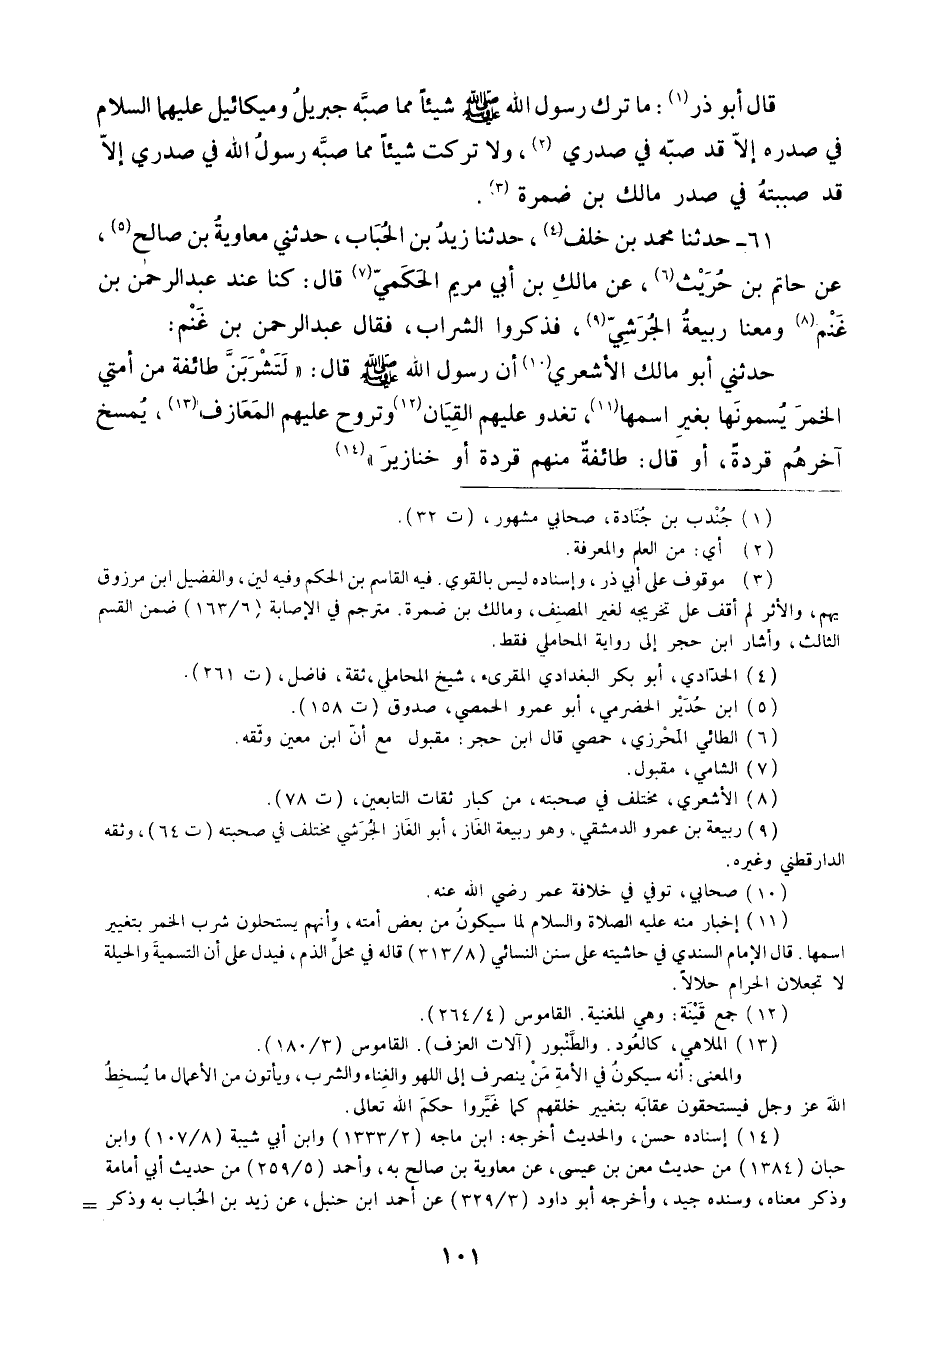 قال أبو ذر(١) : ما ترك رسول الله ﷺ شيئاً مما صبَّه جبريلُ وميكائيل عليهما السلام
في صدره إلاّ قد صبّه في صدري (٢) ، ولا تركت شيئاً مما صبَّه رسولُ الله في صدري إلاّ
قد صببتهُ في صدر مالك بن ضمرة (٣) .
٦١ـ حدثنا محمد بن خلف(٤) ، حدثنا زيدُ بن الحُبَاب ، حدثني معاويةُ بن صالح(٥) ،
عن حاتم بن حُرَيْث(٦) ، عن مالكِ بن أبي مريم الحَكَميّ(٧) قال : كنا عند عبدالرحمٰن بن
غَنْم(٨) ومعنا ربيعةُ الجُرَشيّ(٩) ، فذكروا الشراب ، فقال عبدالرحمن بن غَنْم :
حدثني أبو مالك الأشعري(١٠) أن رسول الله ﷺ قال : « لَتَشْرَبَنَّ طائفة من أمتي
الخمرَ يُسمونَها بغيرِ اسمها(١١)، تغدو عليهم القيَان(١٢) وتروح عليهم المَعَازف(١٣) ، يُمسخ
آخرهُم قردةً ، أو قال : طائفةٌ منهم قردة أو خنازيرَ »(١٤)
(١) جُنْدب بن جُنَادة، صحابي مشهور ، (ت ٣٢).
(٢) أي : من العلم والمعرفة .
(٣) موقوف على أبي ذر ، وإسناده ليس بالقوي . فيه القاسم بن الحكم وفيه لين ، والفضيل ابن مرزوق
يهم ، والأثر لم أقف على تخريجه لغير المصنِف، ومالك بن ضمرة. مترجم في الإصابة (١٦٣/٦) ضمن القسم
الثالث ، وأشار ابن حجر إلى رواية المحاملي فقط.
(٤) الحدّادي، أبو بكر البغدادي المقرىء ، شيخ المحاملي ،ثقة ، فاضل ، (ت ٢٦١) .
(٥) ابن حُدَيْر الحضرمي ، أبو عمرو الحمصي، صدوق (ت ١٥٨).
(٦) الطائي المَحْرزي، حمصي قال ابن حجر : مقبول مع أنّ ابن معين وثّقه .
(٧) الشامي ، مقبول .
(٨) الأشعري ، مختلف في صحبته ، من كبار ثقات التابعين ، (ت ٧٨).
(٩) ربيعة بن عمرو الدمشقي ، وهو ربيعة الغَاز ، أبو الغَاز الجُرَشي مختلف في صحبته (ت ٦٤) ، وثقه
الدارقطني وغيره .
(١٠) صحابي ، توفي في خلافة عمر رضي الله عنه .
(١١) إخبار منه عليه الصلاة والسلام لما سيكونُ من بعض أمته ، وأنهم يستحلون شرب الخمر بتغيير
اسمها . قال الإمام السندي في حاشيته على سنن النسائي (٣١٣/٨) قاله في محلِّ الذم ، فيدل على أن التسميةَ والحيلة
لا تجعلان الحرام حلالاً .
(١٢) جمع قَيْنَة : وهي المغنية . القاموس (٢٦٤/٤).
(١٣) الملاهي ، كالعُود . والطَّنْبور (آلات العزف). القاموس (١٨٠/٣).
والمعنى : أنه سيكونُ في الأمةِ مَنْ ينصرف إلى اللهو والغِناء والشرب ، ويأتون من الأعمال ما يُسخِطُ
اللهَ عز وجل فيستحقون عقابَه بتغيير خلقهم كما غَيَّروا حكمَ الله تعالى .
(١٤) إسناده حسن ، والحديث أخرجه : ابن ماجه (١٣٣٣/٢) وابن أبي شيبة (١٠٧/٨) وابن
حبان (١٣٨٤) من حديث معن بن عيسى ، عن معاوية بن صالح به ، وأحمد (٢٥٩/٥) من حديث أبي أمامة
وذكر معناه ، وسنده جيد ، وأخرجه أبو داود (٣٢٩/٣) عن أحمد ابن حنبل ، عن زيد بن الحُباب به وذكر =
١٠١